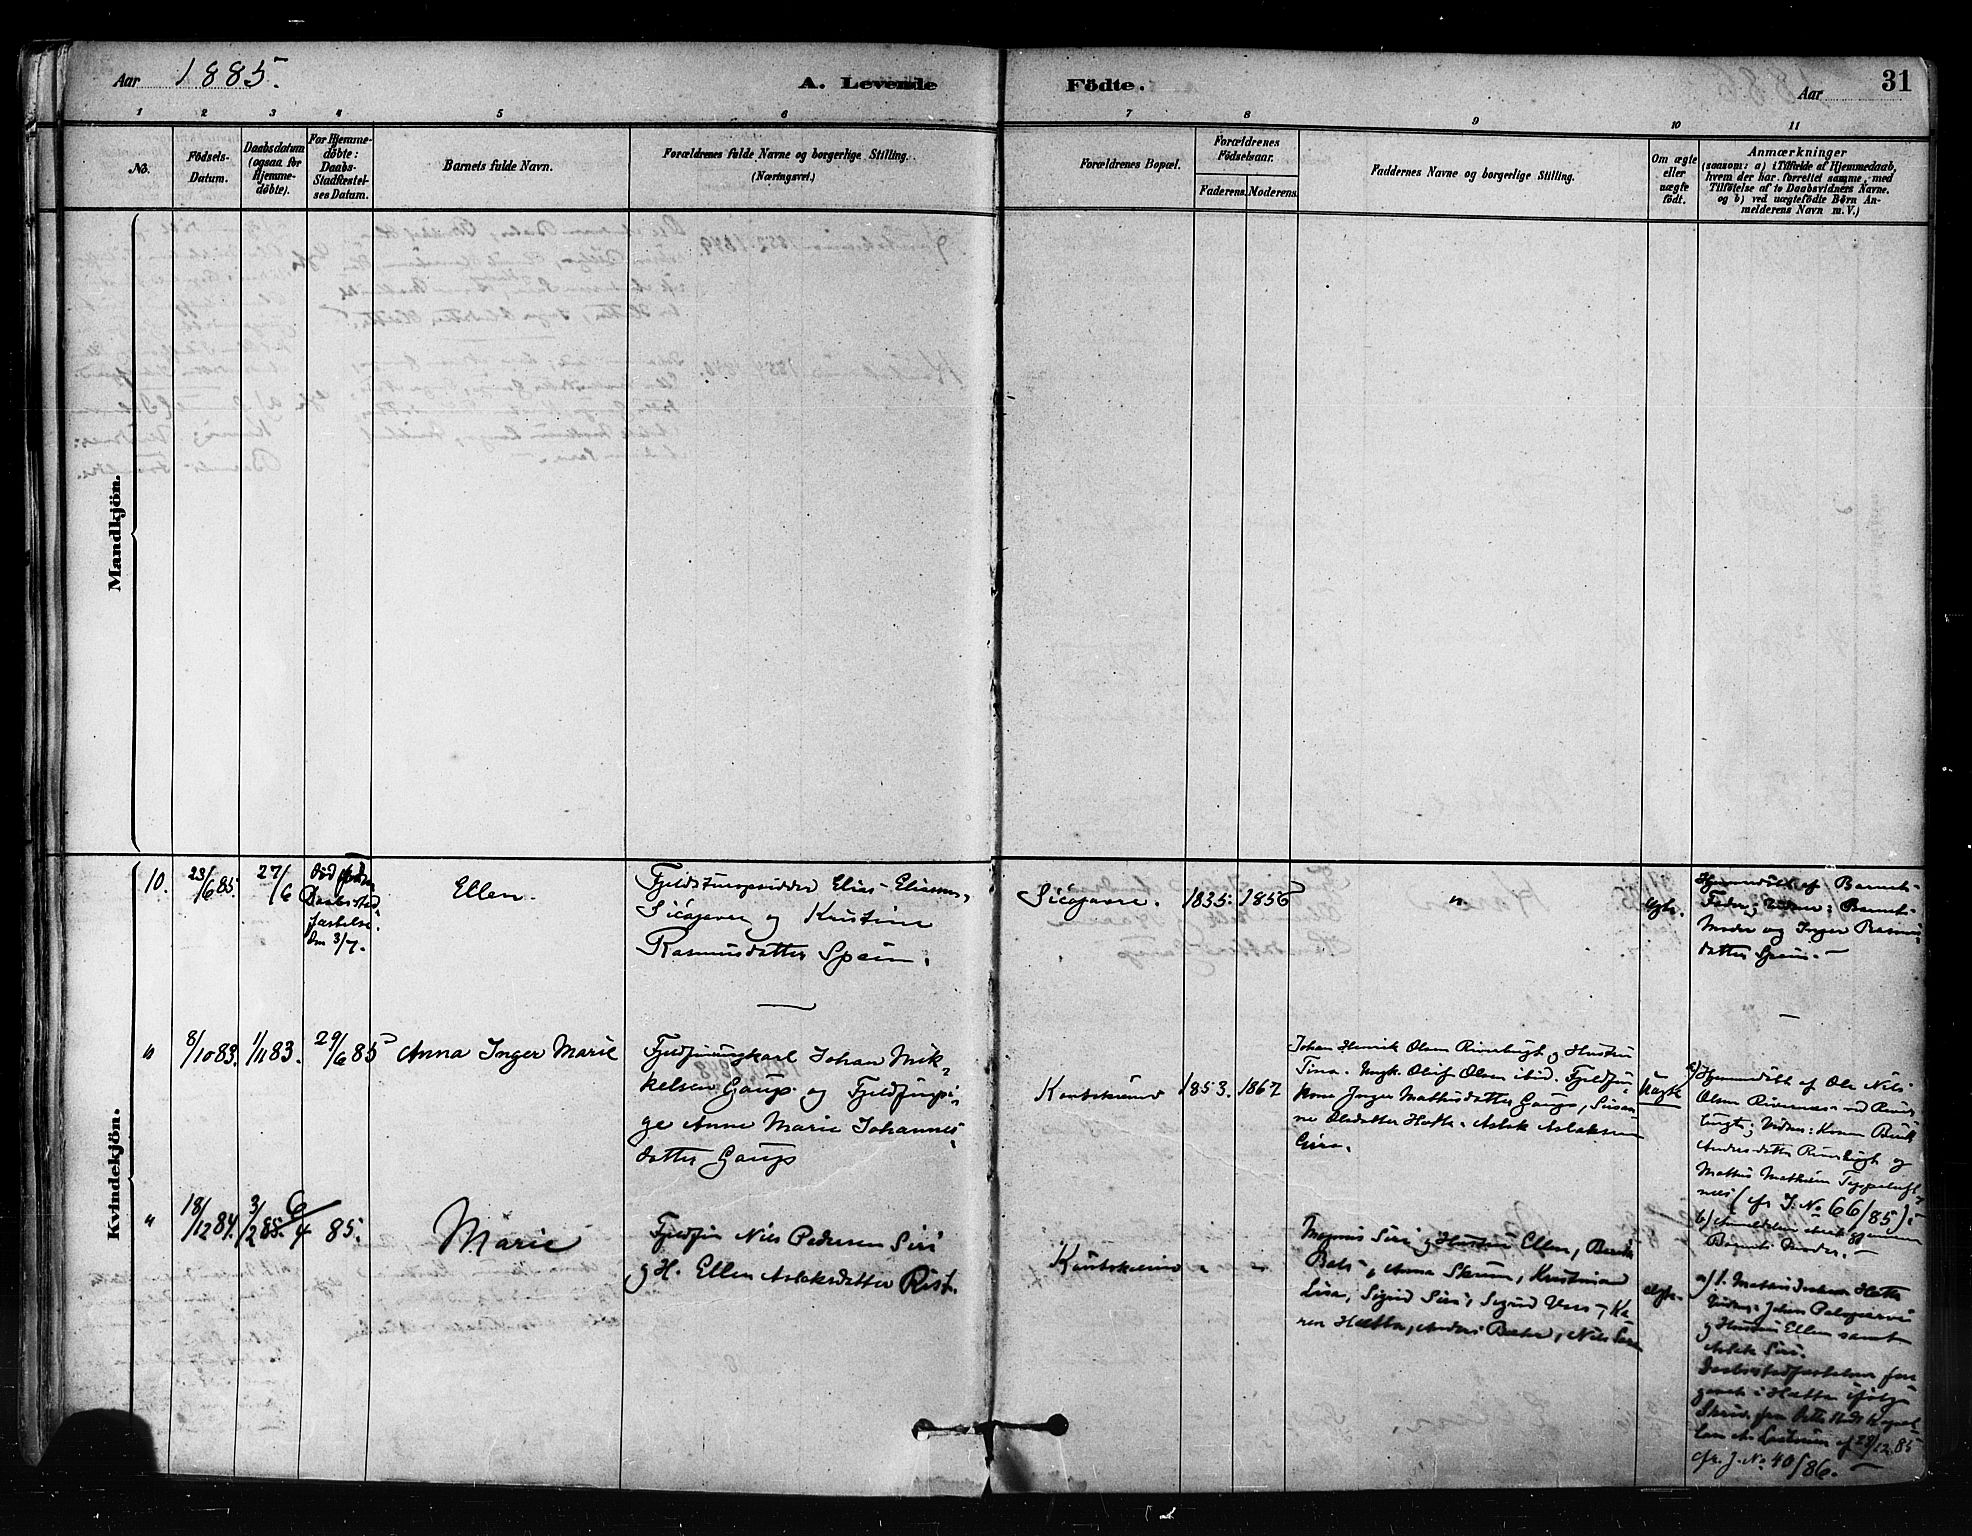 Aar 1885.
A. Levende Födte.
Aar
31
1 2 3 4 5 6 7 8 9 10 11
No.
Födsels-
Datum.
Daabsdatum
(ogsaa for
Hjemme-
döbte).
For Hjemme-
döbte:
Daabs-
Stadfæstel-
ses Datum.
Barnets fulde Navn.
Forældrenes fulde Navne og borgerlige Stilling.
(Næringsvei.)
Forældrenes Bopæl.
Forældrenes
Födselsaar.
Faderens. Moderens.
Faddernes Navne og borgerlige Stilling.
Om ægte
eller
uægte
födt.
Anmærkninger
(saasom: a) i Tilfælde af Hjemmedaab,
hvem der har forrettet samme, med
Tilföielse af to Daabsvidners Navne,
og b) ved uægtefödte Börn An-
melderens Navn m. V.)
Mandkjön.
Kvindekjön.
10.
23/6 85.
27/6
Død før
Daabsstad-
fæstelse
den 3/7.
Ellen.
Elias
og Kristine
Rasmusdatter Spein.
1835. 1856
"
Ægte.
Hjemmedöbt af Barnets
Fader; Vidner: Barnets
Moder og Inger Rasmus-
datter Spein. —
"
8/10 83.
1/11 83.
29/6 85
Anna Inger Marie
Fjeldfinungkarl Johan Mik-
kelsen Gaup og Fjeldfinpi-
ge Anne Marie Johannes-
datter Gaup
Kautokeino
1853. 1867
Johan Henrik Olsen og Hustru
Tina. Ungk. Olaf Olsen ibid. Fjeldfin-
kone Inger Mathisdatter Gaup, Susan-
ne Olsdatter Hætta. Aslak Aslaksen
Uægte
a) Hjemmedöbt af Ole Nils
Olsen
Vidner: Kone Berit
Andersdatter og
Mathis Mathisen
(cfr J. No 66/85).
b)
Barnets Moder. —
"
18/12 84.
3/2 85.
6/4 85.
Marie
Fjeldfin Nils Pedersen Siri
og H. Ellen Aslaksdatter Rist.
Kautokeino
" "
Magnus Siri og Hustru Ellen, Berit
Bals, Anna Skum, Kristian
Lisa, Sigrid Siri, Sigrid Vars, Ka-
ren Hætta, Anders Bæhr, Nils Sara
Ægte.
a) f. Mathis Hætta
Vidner: Johan
og Hustru Ellen samt
Aslak Siri.
Daabsstadfæstelsen fore-
gaaet i Hætta ifølge
Skriv. fra
af 28/12 85
cfr. J. No. 40/86. —